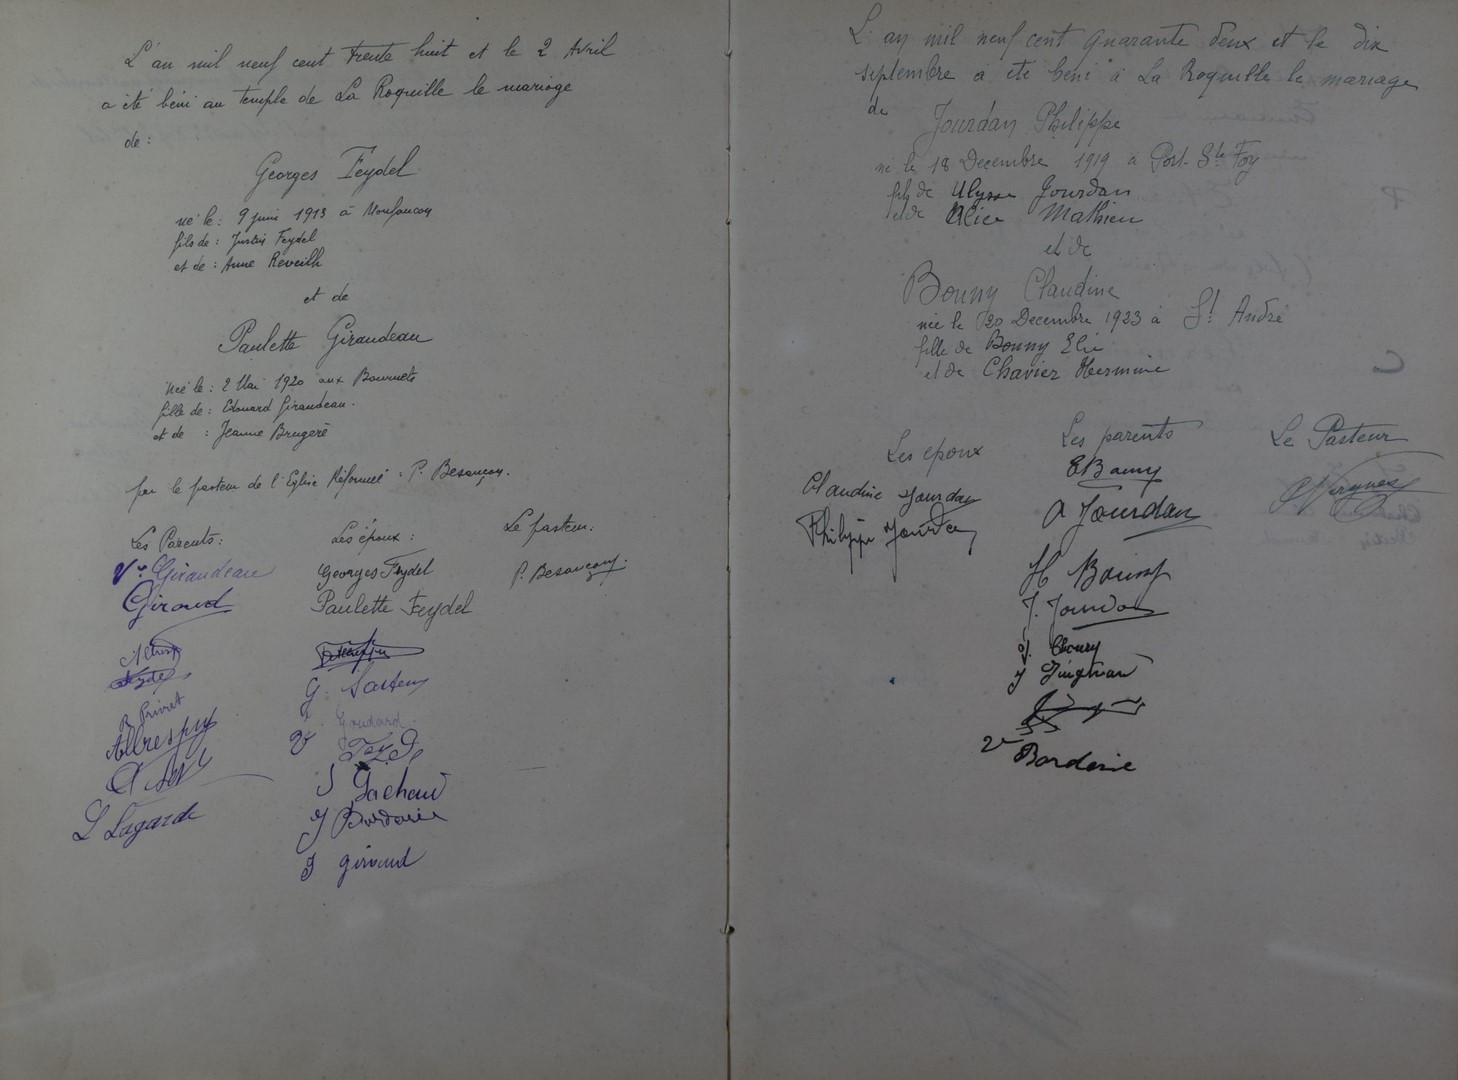 L'an mil neuf cent trente huit et le 2 Avril
a été béni au temple de La Roquille le mariage
de :
Georges Feydel
né le : 9 juin 1913 à Monfaucon
fils de : Justin Feydel
et de : Anne Reveilh
et de
Paulette Giraudeau
née le : 2 Mai 1920 aux Bournets
fille de : Edouard Giraudeau.
et de : Jeanne Brugère
par le pasteur de l'Eglise Réformée : P. Besançon.
Les Parents :
Vve Giraudeau
Giraud
R Privret
L Lagarde
Les époux :
Georges Feydel
Paulette Feydel
G.
Goudard
J Gachaud
J Bordarie
J giraud
Le pasteur :
P. Besançon.
L'an mil neuf cent quarante deux et le dix
septembre a été béni à La Roquille le mariage
de
Jourdan Philippe
né le 18 Decembre 1919 à Port-Ste Foy
fils de Ulysse Jourdan
et de Alice Mathieu
et de
Bonny Claudine
née le 20 Decembre 1923 à St André
fille de Bonny Elie
et de Chavier Hermine
Les epoux
Claudine Jourdan
Philippe Jourdan
Les parents
E Bonny
A Jourdan
H Bonny
J. Jourdan
Bordarie
Le Pasteur